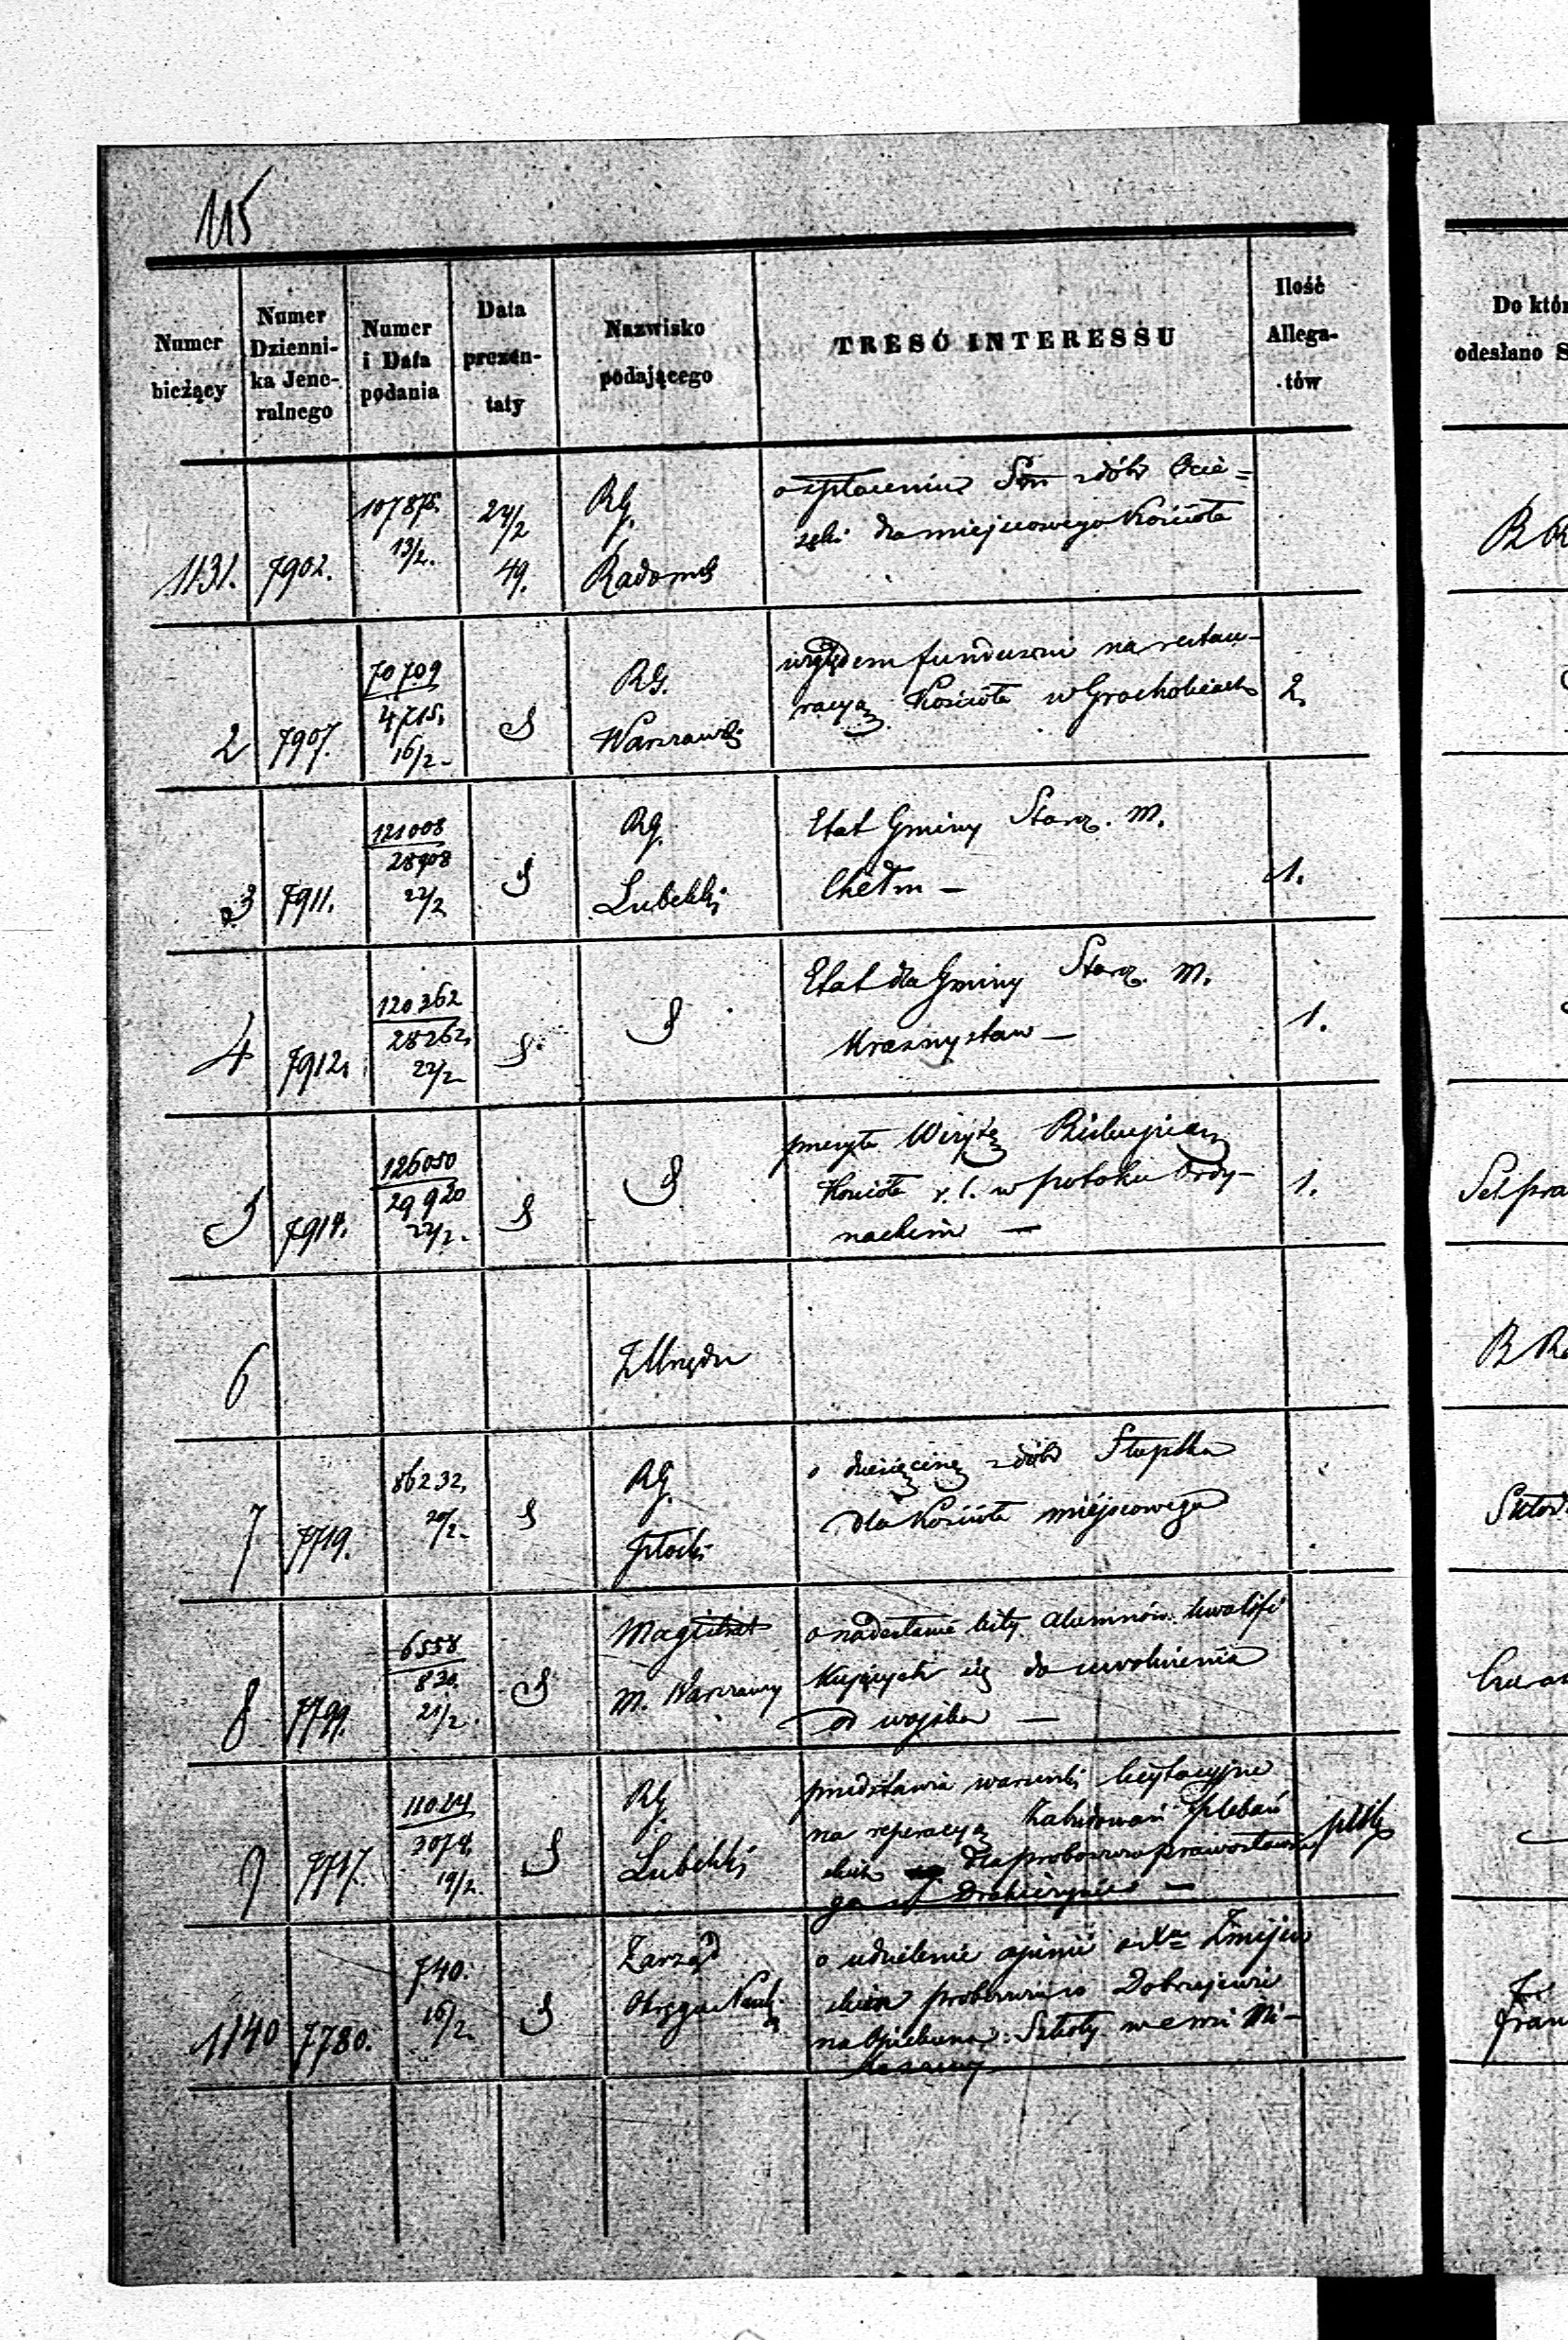 115
Numer bieżący
Numer Dzienni-ka Jene-ralnego
Numer i Data podania
Data prezen-taty
Nazwisko podającego
TRESĆ INTERESSU
Ilość Allega-tów
Do któr
odesłano S
1131. 7902. 107875. 13/2. 24/2 49. RG. Radomsk
o spłaceniu z dóbr Ocie=
dla miejscowego Kościoła
2 7907. 70709 4715. 16/2 RG. Warszawski
względem funduszu na restau-
racyą Kościoła w Grocholicach 2.
3 7911. 121008 28908 22/2 RG. Lubelski
Etat Gminy Starz. M.
Chełm — 1.
4 7912. 120262 28262. 22/2
Etat dla Gminy Starz. M.
Krasnystaw — 1.
5 7914. 126050 29920 22/2.
Kościoła r. l. w potoku Ordy-
nackim — 1.
6 Z Urzędu
7 7719. 86232. 20/2. RG. Płocki
o dziesięcinę z dóbr Słupska
dla Kościoła miejscowego
8 7799. 6558 830. 21/2. Magistrat M. Warszawy
o nadesłanie listy alumnów kwalifi
kujących się do uwolnienia
od wojska —
9 7737. 3074. 19/2. RG. Lubelski
przedstawia warunki licytacyjne
na reperacyą Zabudowań plebań
skich dla proboszcza prawosławne
go w —
1140 7780. 740. 16/2. Zarząd Okręgu Nauk.
o udzielenie opinii o Xu Żmijew
skim proboszczu w
na Opiekuna Szkoły we wsi Mi-